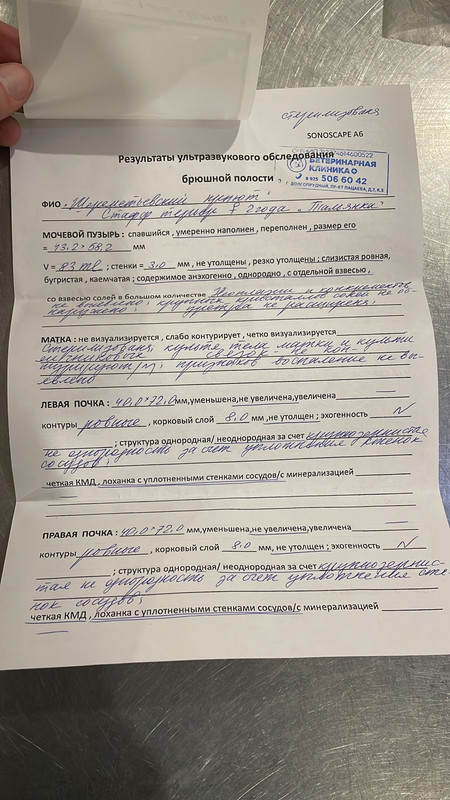 стерилизована
SONOSCAPE A6
Результаты ультразвукового обследования
брюшной полости
ВЕТЕРИНАРНАЯ
КЛИНИКА
8 925 506 60 42
Г. ДОЛГОПРУДНЫЙ, ПР-КТ ПАЦАЕВА, Д.7, К.5
ФИО Шереметьевский приют
Стафф терьер 2 года "Тальянка"
МОЧЕВОЙ ПУЗЫРЬ : спавшийся , умеренно наполнен , переполнен , размер его
= 73,2 × 58,2 мм
V = 83 ml ; стенки = 3,0 мм , не утолщены , резко утолщены ; слизистая ровная,
бугристая , каемчатая ; содержимое анэхогенно , однородно , с отдельной взвесью ,
со взвесью солей в большом количестве Неоплазии и конкременты
не кристаллов солей не об-
наружено ; уретра не расширена ;
МАТКА : не визуализируется , слабо контурирует , четко визуализируется
Стерилизована; культя тела матки и культи
яичниковых связок не кон-
турируют(?); признаков воспаление не вы-
явлено
ЛЕВАЯ ПОЧКА : 40,0 × 72,0 мм,уменьшена,не увеличена,увеличена —
контуры ровные , корковый слой 8,0 мм ,не утолщен ; эхогенность N
; структура однородная/ неоднородная за счет крупнозернистая
не однородность за счет уплотнения стенок
сосудов ;
четкая КМД , лоханка с уплотненными стенками сосудов/с минерализацией
ПРАВАЯ ПОЧКА : 40,0 × 72,0 мм,уменьшена,не увеличена,увеличена —
контуры ровные , корковый слой 8,0 мм, не утолщен ; эхогенность N
; структура однородная/ неоднородная за счет крупнозернис-
тая не однородность за счет уплотнения сте-
нок сосудов ;
четкая КМД , лоханка с уплотненными стенками сосудов/с минерализацией
—